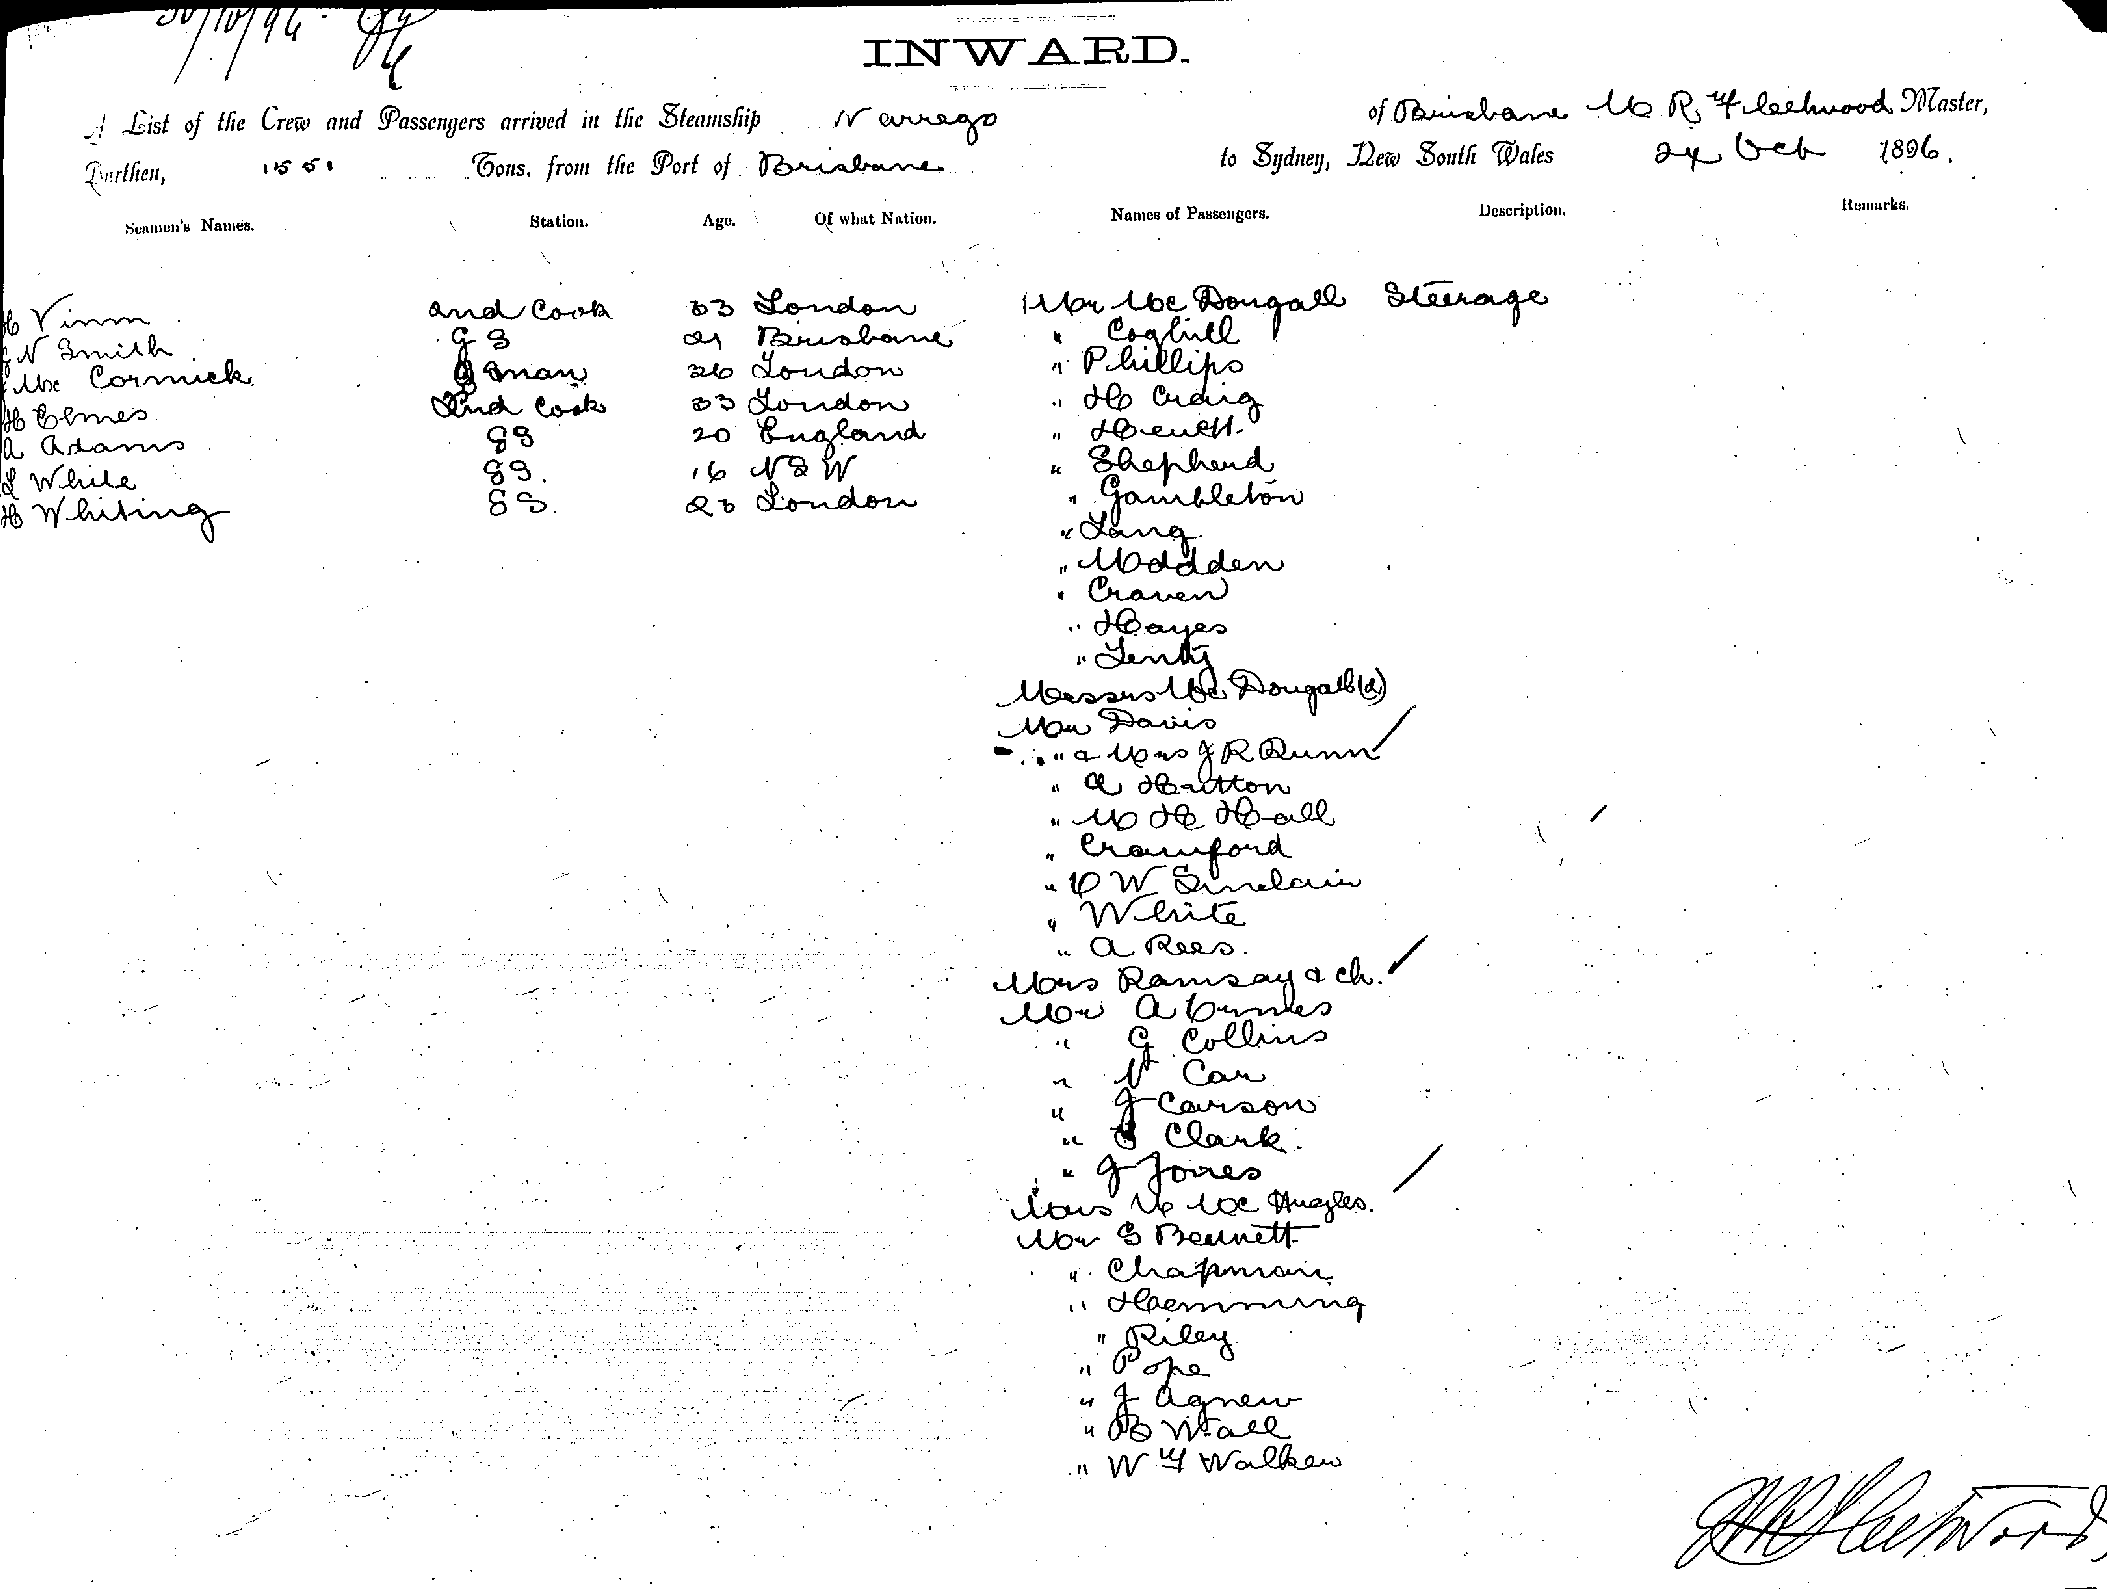 30/10/96.
INWARD.
A List of the Crew and Passengers arrived in the Steamship Warrego of Brisbane M R Fleetwood Master,
Burthen, 1551 Tons, from the Port of Brisbane to Sydney, New South Wales 24 Oct 1896.
Seamen's Names. Station. Age. Of what Nation. Names of Passengers. Description. Remarks.
H Vimm 2nd Cook 33 London Mr Mc Dougall Steerage
J N Smith G S 21 Brisbane " Coghill
J Mc Cormick Sman 26 London " Phillips
H Elmes 2nd Cook 33 London " H Craig
A Adams GS 20 England " Hewett
L White GS. 16 N S W " Shepherd
H Whiting GS. 23 London " Gambleton
" Lang
" Madden
" Craven
" Hayes
" Lenty
Messrs Mc Dougall (2)
Mr Davis
" & Mrs J R Dunn
" A Hutton
" M H Hall
" Crawford
" C W Sinclair
" White
" A Rees.
Mrs Ramsay & ch.
Mr A
" G Collins
" N Carr
" J Carson
" S Clark.
" J Jones
Mrs Mc Hughes.
Mr G Bennett
" Chapman
" Hemming
" Riley
" Pope
" J Agnew
" B Wall
" W F Walker
M R Fleetwood